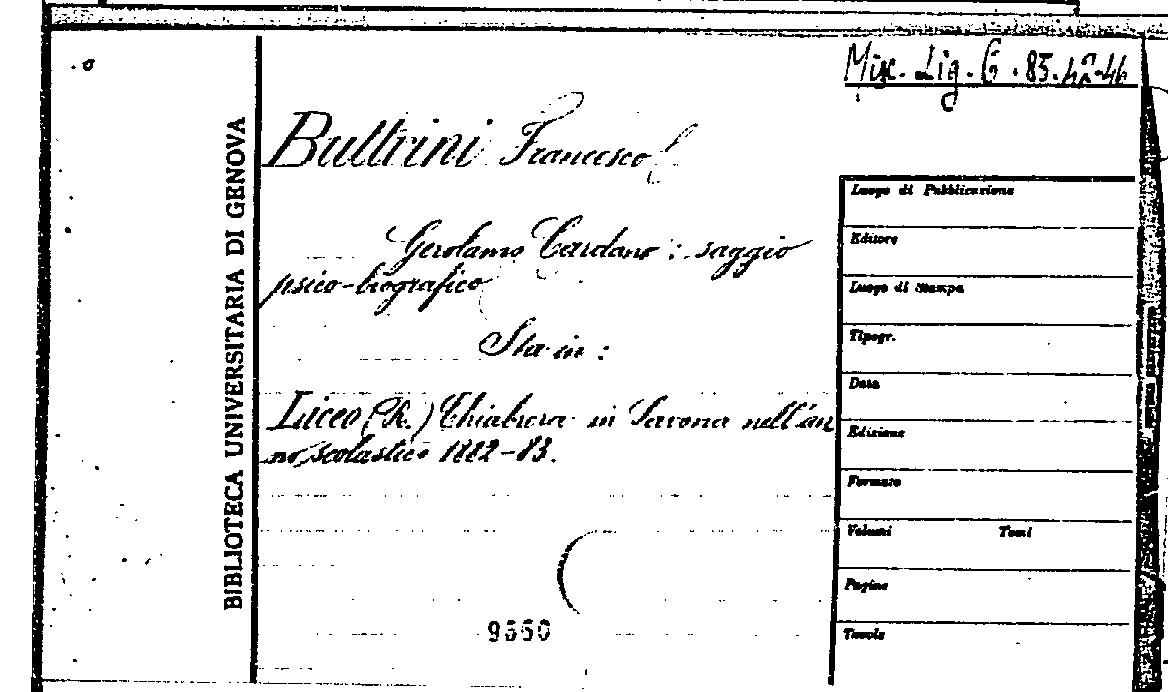 Misc. Lig. G. 85.
BIBLIOTECA UNIVERSITARIA DI GENOVA
Buttrini Francesco
Gerolamo Cardano : saggio
psico-biografico
Sta in :
Liceo (R.) Chiabrera in Savona nell'an
no scolastico 1882-83.
Luogo di Pubblicazione
Editore
Luogo di Stampa
Tipogr.
Data
Edizione
Formato
Volumi Tomi
Pagine
Tavole